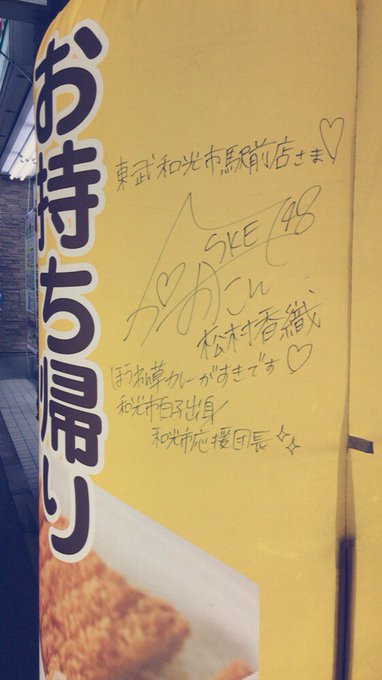 お持ち帰り
東武和光市駅前店さま♡
SKE48
かおたん
松村香織
ほうれん草カレーがすきです♡
和光市白子出身
和光市応援団長